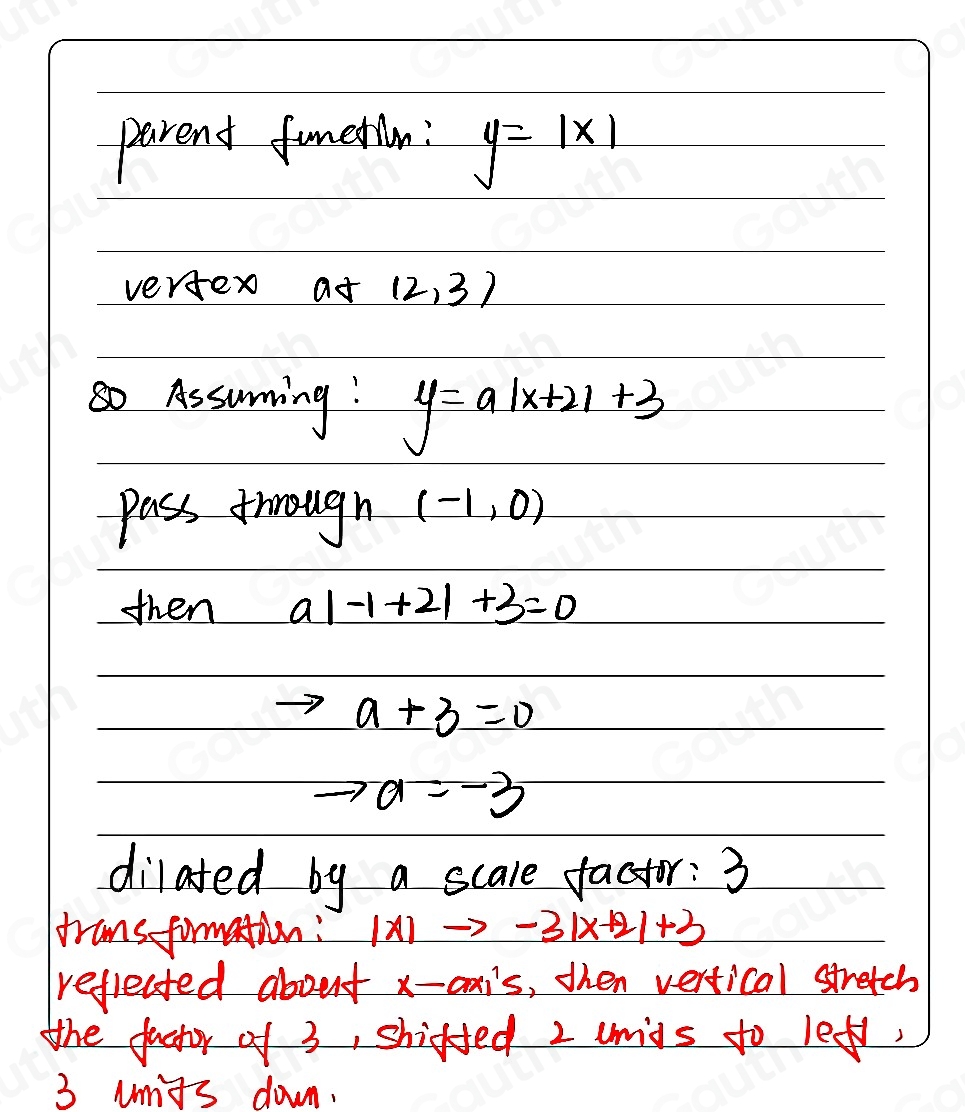 parent function: y = |x|
vertex at (2,3)
so Assuming: y = a|x+2| +3
pass through (-1,0)
then a|-1+2| +3=0
→ a+3=0
→ a=-3
dilated by a scale factor: 3
transformation: |x| → -3|x+2|+3
reflected about x-axis, then vertical stretch
the factor of 3, shifted 2 units to left,
3 units down.